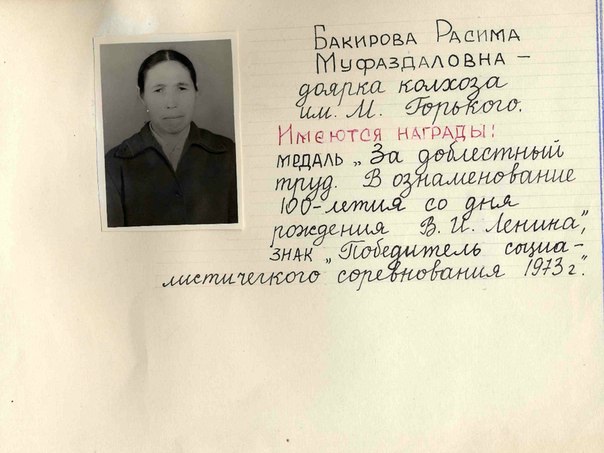 Бакирова Расима
Муфаздаловна –
доярка колхоза
им. М. Горького.
Имеются награды:
медаль „За доблестный
труд. В ознаменование
100-летия со дня
рождения В. И. Ленина",
знак „Победитель социа-
листического соревнования 1973 г."